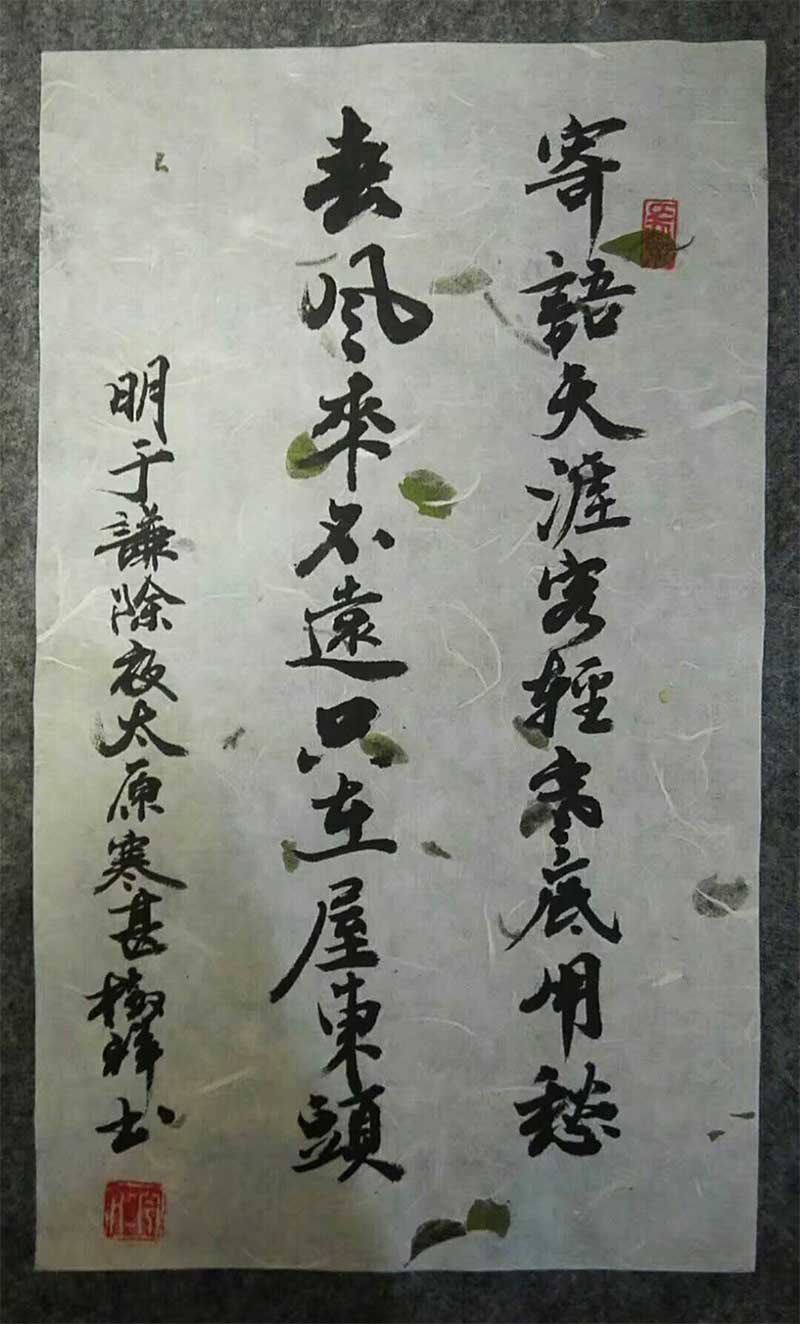 寄語天涯客輕寒底用愁
春風來不遠只在屋東頭
明于謙除夜太原寒甚樹书